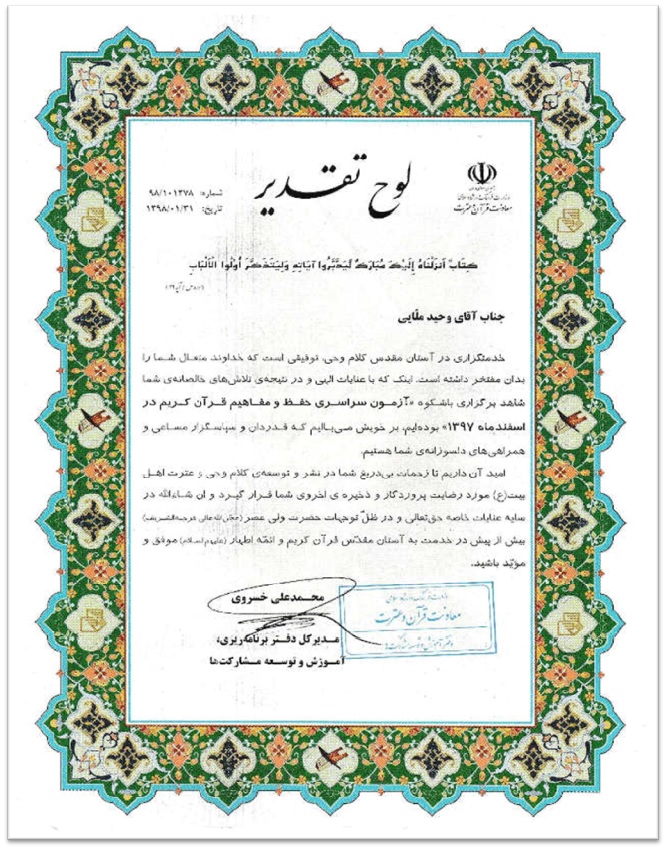 لوح تقدیر
معاونت قرآن و عترت
شماره: ۹۸/۱۰۱۳۷۸
تاریخ: ۱۳۹۸/۰۱/۳۱
كِتَابٌ أَنزَلْنَاهُ إِلَيْكَ مُبَارَكٌ لِيَدَّبَّرُوا آيَاتِهِ وَلِيَتَذَكَّرَ أُولُوا الْأَلْبَابِ
جناب آقای وحید ملّایی
خدمتگزاری در آستان مقدس کلام وحی، توفیقی است که خداوند متعال شما را
بدان مفتخر داشته است. اینک که با عنایات الهی و در نتیجه‌ی تلاش‌های خالصانه‌ی شما
شاهد برگزاری باشکوه «آزمون سراسری حفظ و مفاهیم قرآن کریم در
اسفندماه ۱۳۹۷» بوده‌ایم، بر خویش می‌بالیم که قدردان و سپاسگزار مساعی و
همراهی‌های دلسوزانه‌ی شما هستیم.
امید آن داریم تا زحمات بی‌دریغ شما در نشر و توسعه‌ی کلام وحی و عترت اهل
بیت(ع) مورد رضایت پروردگار و ذخیره ی اخروی شما قرار گیرد و ان شاءالله در
سایه عنایات خاصه حق‌تعالی و در ظلّ توجهات حضرت ولی عصر (عجل‌الله‌تعالی فرجه‌الشریف)
بیش از پیش در خدمت به آستان مقدّس قرآن کریم و ائمّه اطهار (علیهم‌السلام) موفق و
مؤیّد باشید.
محمدعلی خسروی
مدیرکل دفتر برنامه‌ریزی،
آموزش و توسعه مشارکت‌ها
معاونت قرآن و عترت